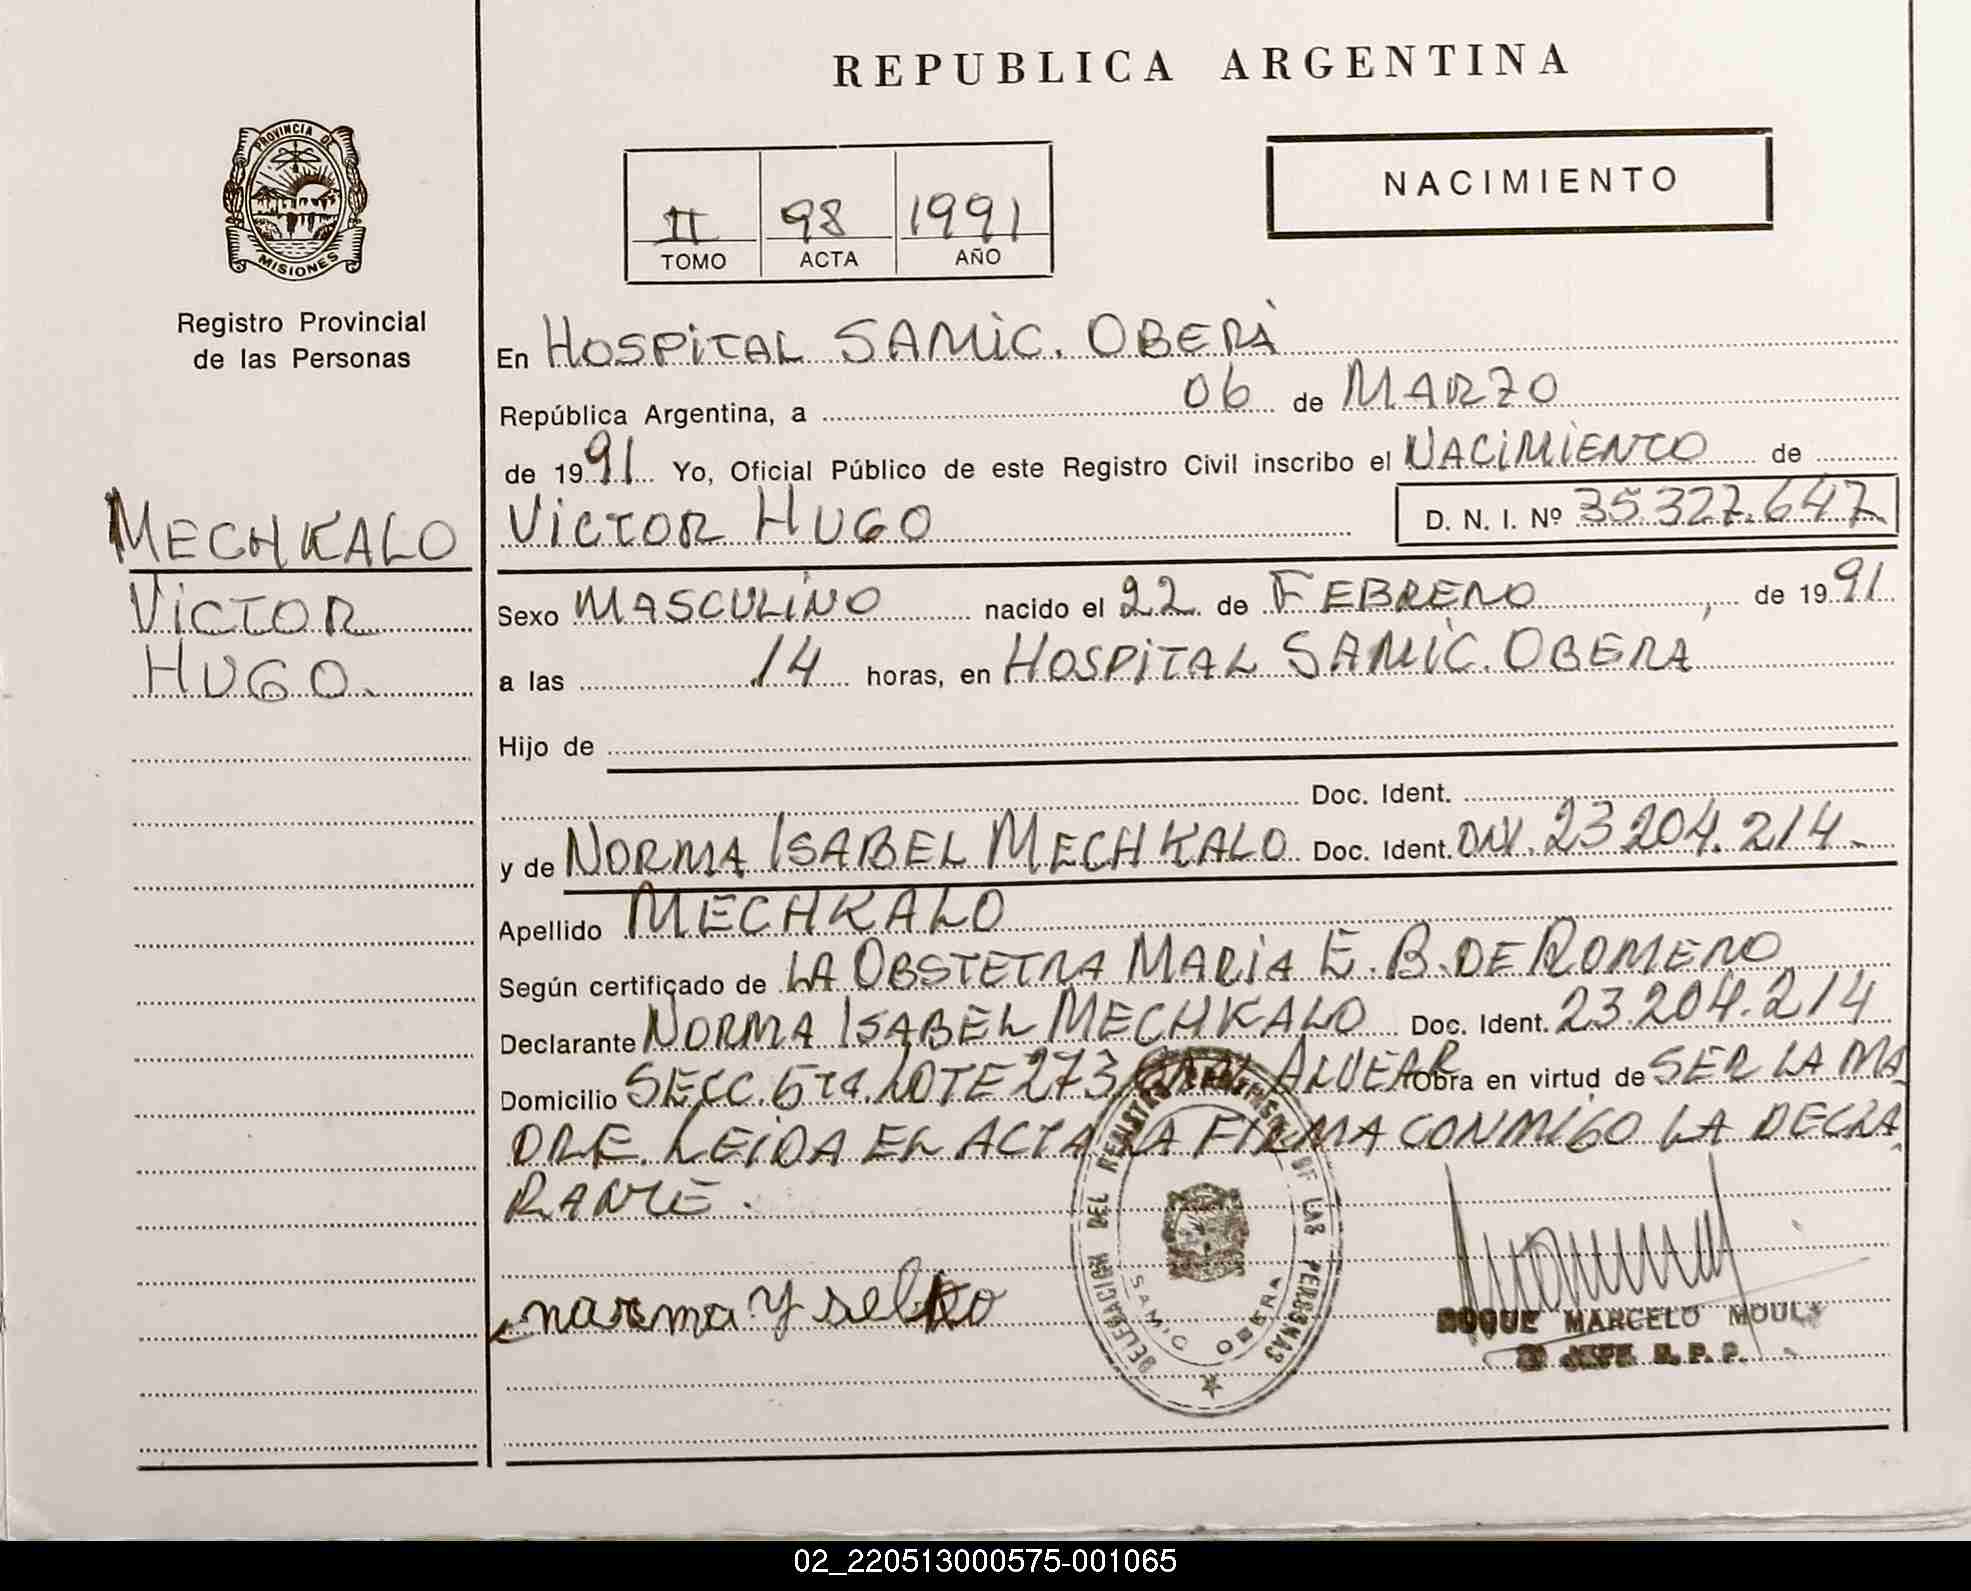 REPUBLICA ARGENTINA
PROVINCIA DE
MISIONES
Registro Provincial
de las Personas
II 98 1991
TOMO ACTA AÑO
NACIMIENTO
MECHKALO
VICTOR
HUGO.
En HOSPITAL SAMIC. OBERÁ
República Argentina, a 06 de MARZO
de 1991 Yo, Oficial Público de este Registro Civil inscribo el NACIMIENTO de
VICTOR HUGO D. N. I. Nº 35.327.647
Sexo MASCULINO nacido el 22 de FEBRERO, de 1991
a las 14 horas, en HOSPITAL SAMIC. OBERA
Hijo de
Doc. Ident.
y de NORMA ISABEL MECHKALO Doc. Ident. DNI. 23204.214.
Apellido MECHKALO
Según certificado de LA OBSTETRA MARIA E. B. DE ROMERO
Declarante NORMA ISABEL MECHKALO Doc. Ident. 23.204.214
Domicilio SECC. 5ta. LOTE 273 GRAL ALVEAR Obra en virtud de SER LA MA
DRE. LEIDA EL ACTA LA FIRMA CONMIGO LA DECLA
RANTE.
DELEGACION DEL REGISTRO DE LAS PERSONAS
SAMIC OBERA
ROQUE MARCELO
JEFE R. P. P.
02_220513000575-001065